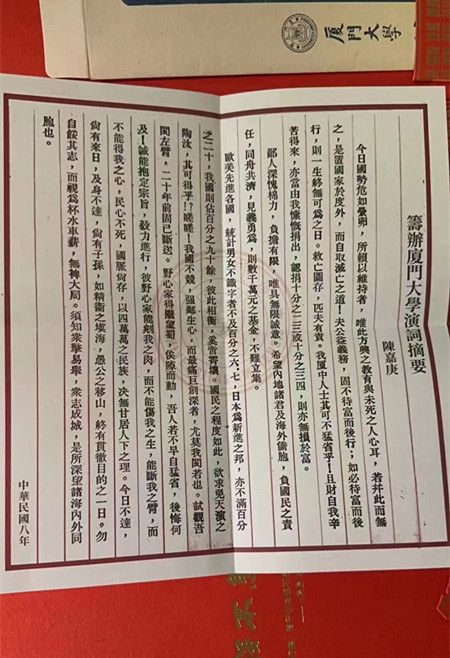 厦門大學
籌辦厦門大學演詞摘要
陳嘉庚
今日國勢危如纍卵,所賴以維持者,唯此方興之教育與未死之人心耳,若幷此而無
之,是置國家於度外,而自取滅亡之道!夫公益義務,固不待富而後行;如必待富而後
行,則一生終無可為之日。救亡圖存,匹夫有責。我厦中人士其可不猛省乎!且財自我辛
苦得來,亦當由我慷慨捐出,認捐十分之二三或十分之三四,則亦無損於富。
鄙人深愧棉力,負擔有限,唯具無限誠意。希望內地諸君及海外僑胞,負國民之責
任,同舟共濟,見義勇爲,則數千萬元之基金,不難立集。
歐美先進各國,統計男女不識字者不及百分之六、七,日本爲新進之邦,亦不滿百分
之二十,我國則佔百分之九十餘,彼此相衡,奚啻霄壤。國民之程度如此,欲求免天演之
陶汰,其可得乎!?嗟嗟!我國不競,强鄰生心,而最巨創深者,尤莫我閩若也。試觀吾
閩左臂,二十年前固已斷送。野心家得隴望蜀,俟隙而動,吾人若不早自猛省,後悔何
及!誠能抱定宗旨,毅力進行,彼野心家能剜我之肉,而不能傷我之生,能斷我之臂,而
不能得我之心,民心不死,國脈尚存,以四萬萬之民族,決無甘居人下之理。今日不達,
尚有來日,及身不達,尚有子孫,如精衛之填海,愚公之移山,終有貫徹目的之一日。勿
自餒其志,而視為杯水車薪,無裨大局。須知眾擎易舉,眾志成城,是所深望諸海內外同
胞也。
中華民國八年
不